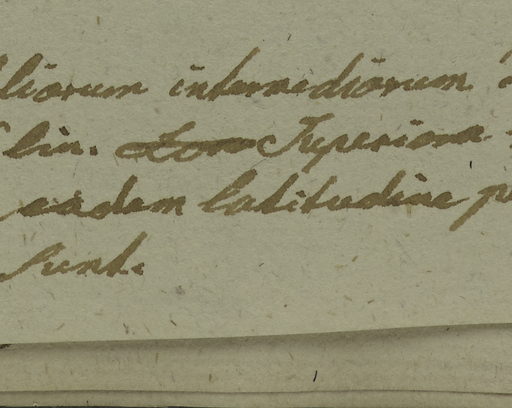 liorum intermediorum
lin. Superiora
eadem latitudine
sunt.